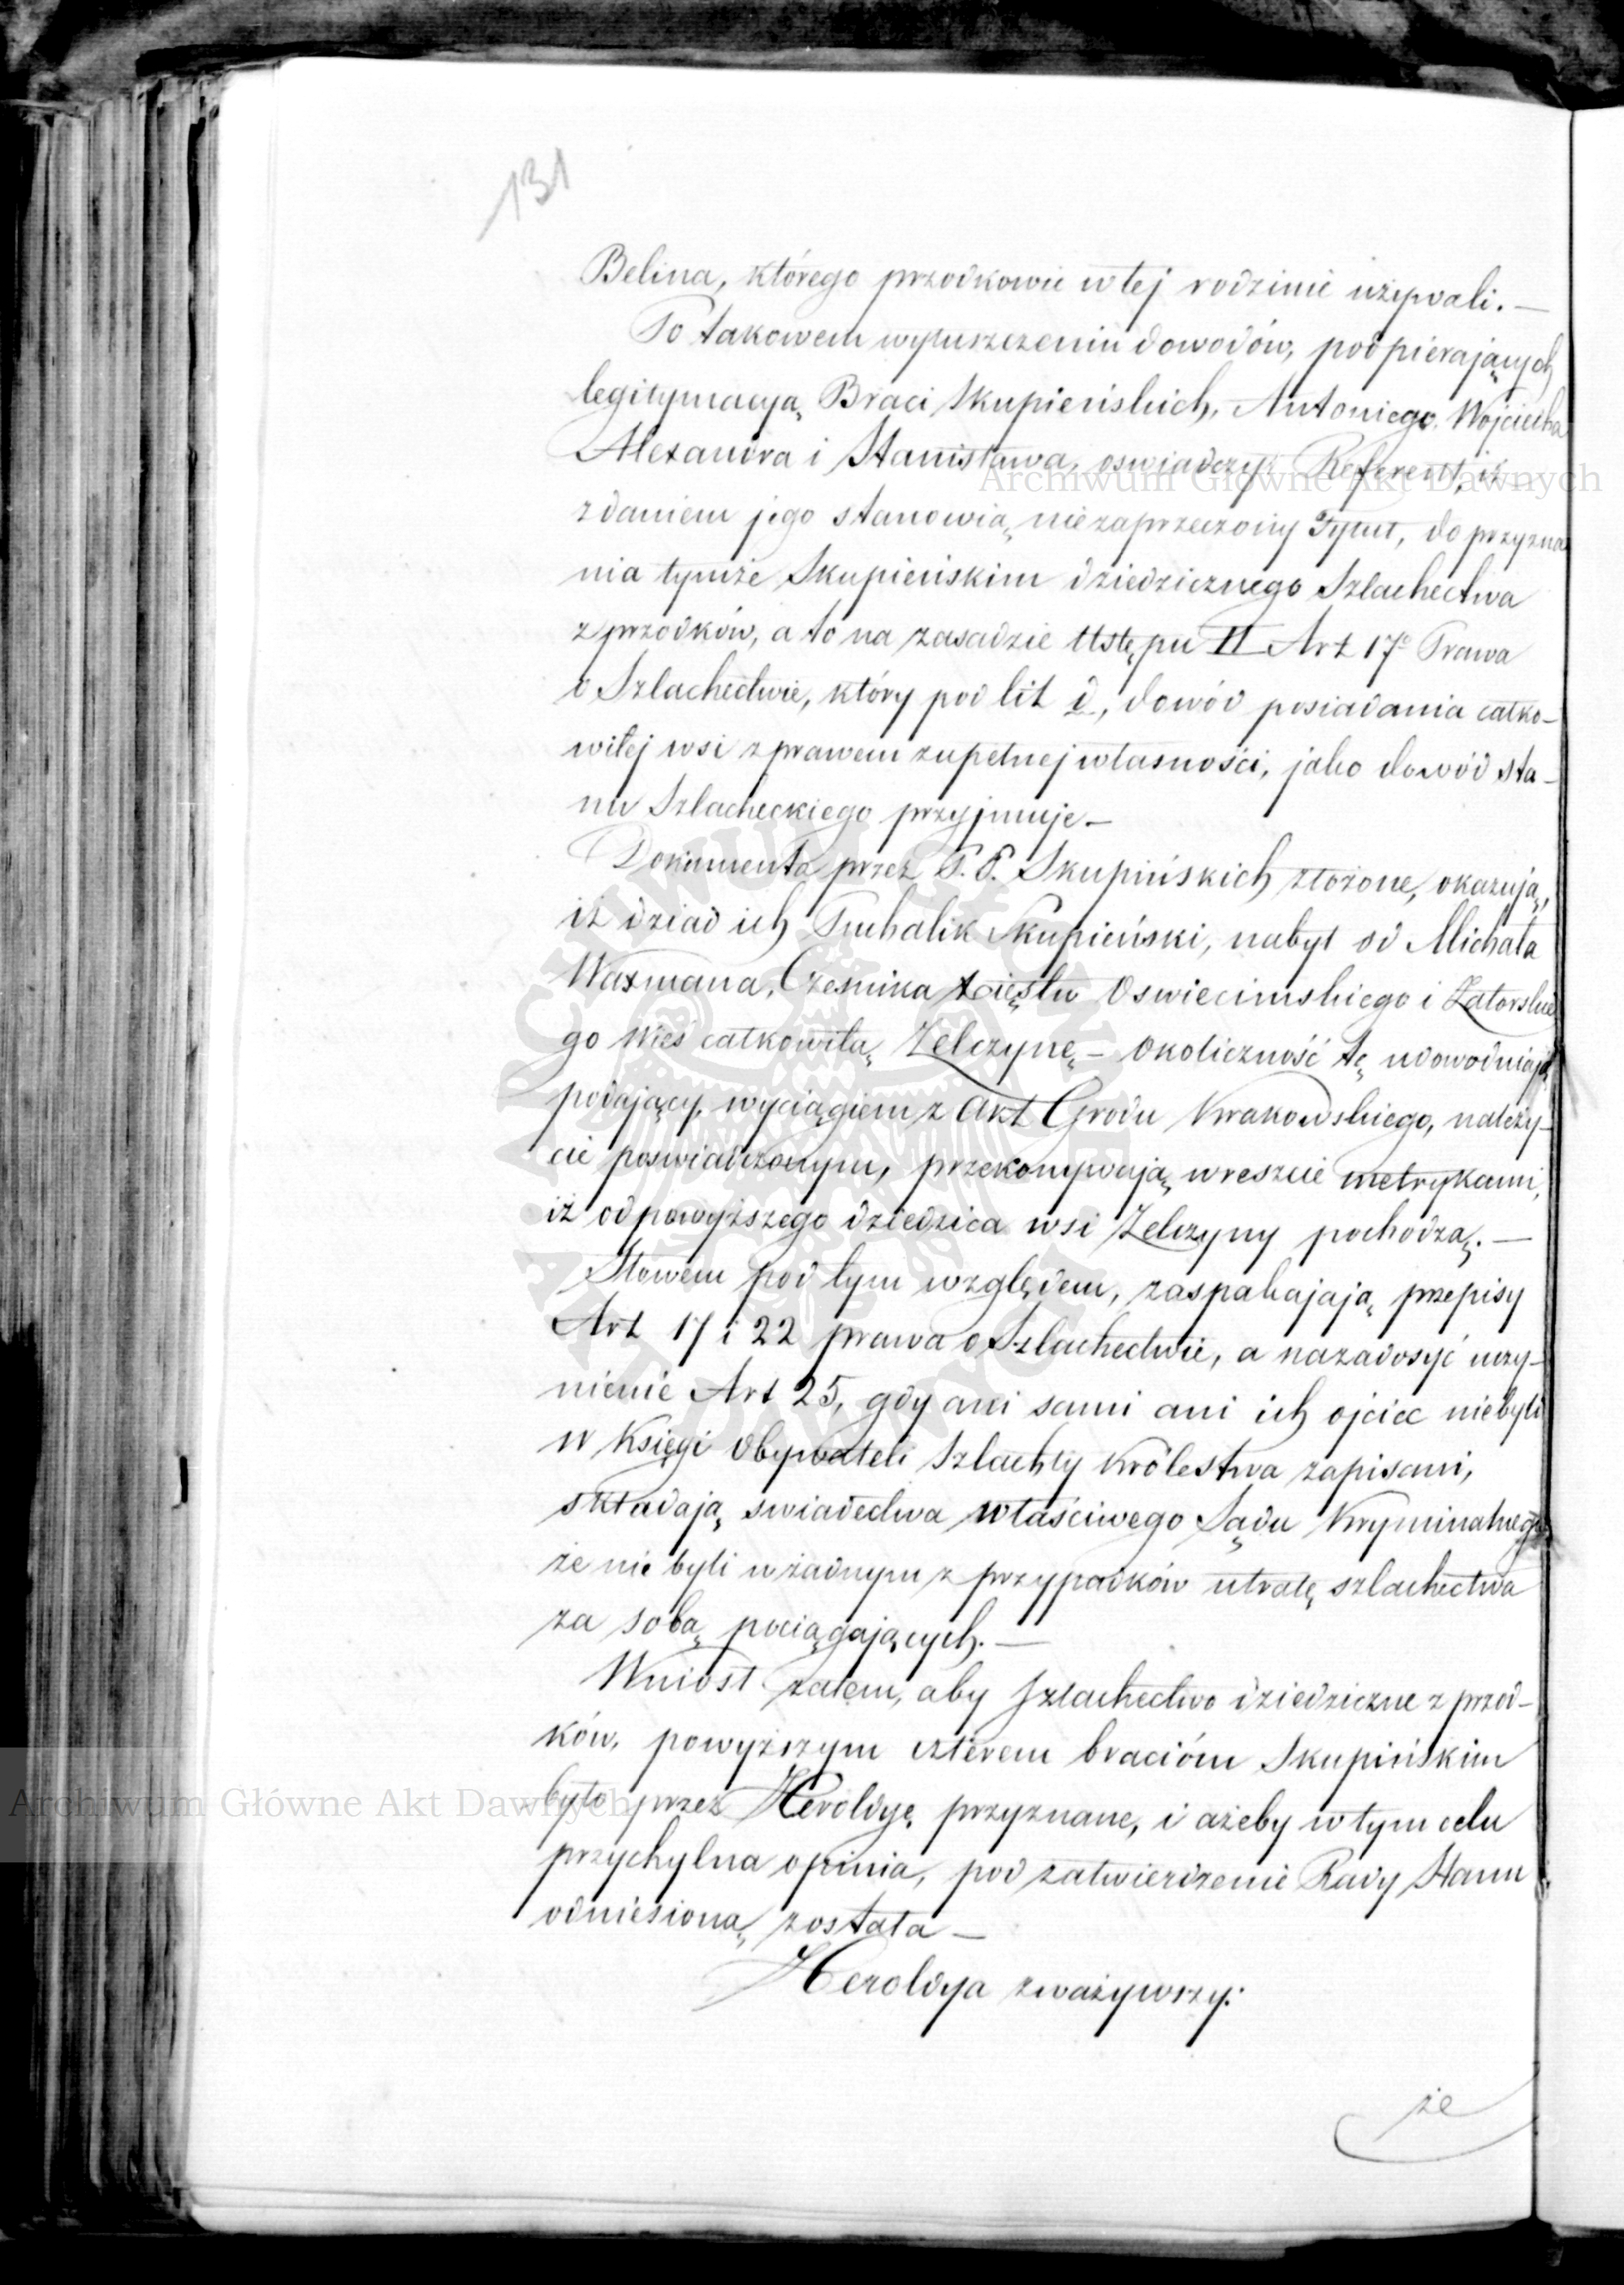 131
Belina, którego przodkowie w tej rodzinie używali. —
Po takowem wyłuszczeniu dowodów, podpierających
legitymacyą Braci Skupieńskich, Antoniego, Wojciecha
Alexandra i Stanisława, oswiadczył Referent, iż
zdaniem jego stanowią niezaprzeczony Tytuł, do przyzna
nia tymże Skupieńskim dziedzicznego Szlachectwa
z przodków, a to na zasadzie Ustępu II Art 17º Prawa
o Szlachectwie, który pod lit d, dowód posiadania całko-
witej wsi z prawem zupełnej własności, jako dowód sta-
nu Szlacheckiego przyjmuje —
Dokumenta przez P. P. Skupińskich złożone, okazują,
iż dziad ich Skupieński, nabył od Michała
Waxmana, Cześnika Xięstw Oswiecimskiego i Zatorskie
go Wieś całkowitą Zelczynę — okoliczność tę udowodniają
podający, wyciągiem z Akt Grodu Krakowskiego, należy-
cie poswiadczonym, przekonywają wreszcie metrykami,
iż od powyższego dziedzica wsi Zelczyny pochodzą. —
Słowem pod tym względem, zaspakajają przepisy
Art 17 i 22 prawa o Szlachectwie, a na zadosyć uczy-
nienie Art 25, gdy ani sami ani ich ojciec niebyli
w Księgi Obywateli Szlachty Królestwa zapisani,
składają swiadectwa właściwego Sądu Kryminalnego
że nie byli w żadnym z przypadków utratę szlachectwa
za sobą pociągających. —
Wniósł zatem, aby szlachectwo dziedziczne z przod-
ków, powyższym czterem braciom Skupińskim
było przez Heroldyę przyznane, i ażeby w tym celu
przychylna opinia, pod zatwierdzenie Rady Stanu
odniesioną została —
Heroldya zważywszy:
że
Archiwum Główne Akt Dawnych
Archiwum Główne Akt Dawnych